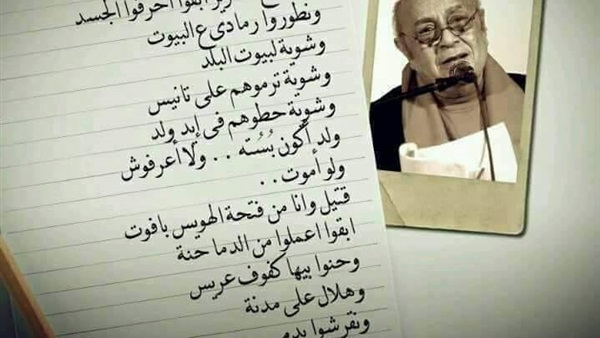 ابقوا احرقوا الجسد
ونطوروا رمادى ع البيوت
وشوية لبيوت البلد
وشوية ترموهم على تانيس
وشوية حطوهم فى إيد ولد
ولد أكون بُسْته .. ولا أعرفوش
ولو أموت ..
قتيل وانا من فتحة الهويس بافوت
ابقوا اعملوا من الدما حنة
وحنوا بيها كفوف عريس
وهلال على مدنة
ونقرشوا بدم